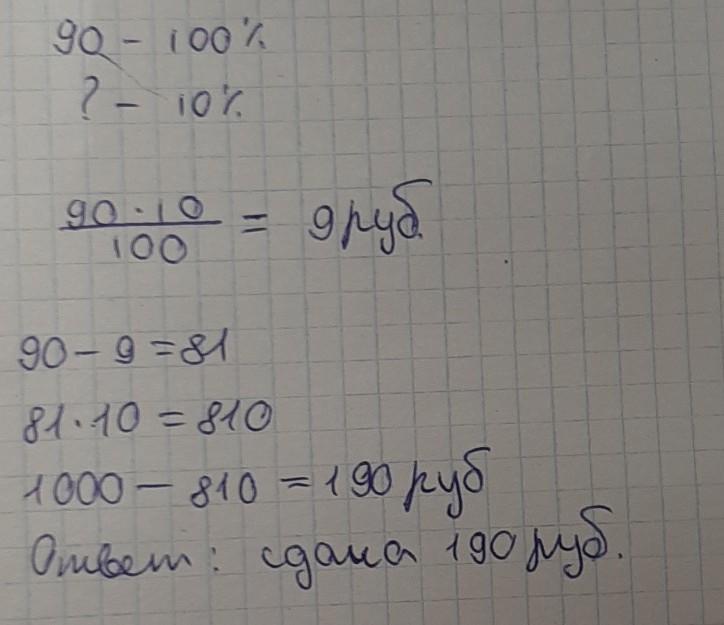 90 - 100%
? - 10%
90 · 10
100
= 9 руб
90 - 9 = 81
81 · 10 = 810
1000 - 810 = 190 руб
Ответ: сдача 190 руб.